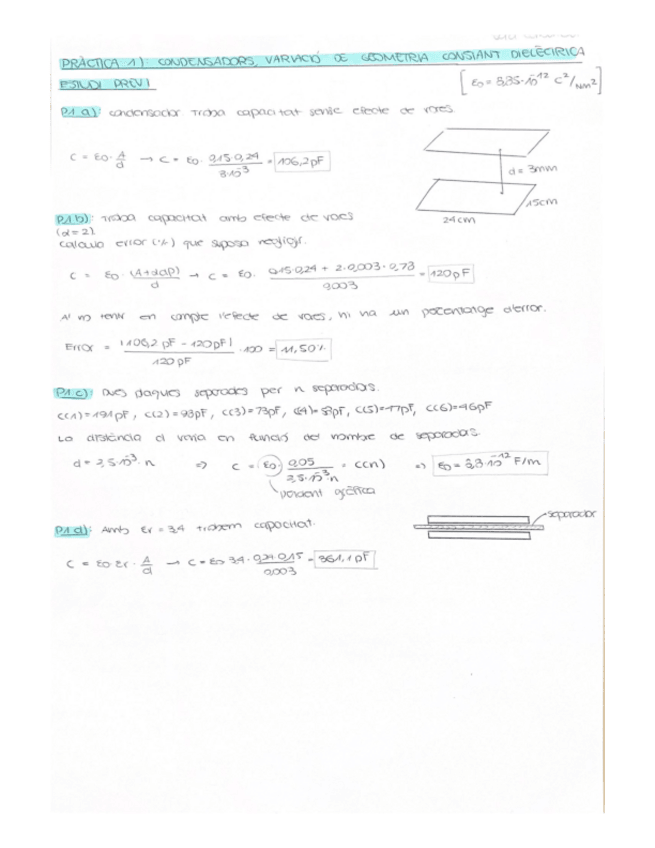 PRÀCTICA 1) CONDENSADORS, VARIACIÓ DE GEOMETRIA CONSTANT DIELÈCTRICA
ESTUDI PREVI
[ε0 = 8,85·10^-12 C²/Nm²]
P1.a): condensador troba capacitat sense efecte de vores.
C = ε0 · A/d → C = ε0 · 0,15·0,24 / 3·10^-3 = 106,2 pF
d = 3mm
15cm
24cm
P1.b): Troba capacitat amb efecte de vores
(α=2).
calcula error (%) que suposa negligir.
C = ε0 · (A+αdp)/d → C = ε0 · 0,15·0,24 + 2·0,003·0,78 / 0,003 = 120pF
Al no tenir en compte l'efecte de vores, hi ha un percentatge d'error.
Error = (106,2 pF - 120pF) / 120 pF · 100 = 11,50%
P1.c): Dues plaques separades per n separadors.
C(1)=191pF, C(2)=93pF, C(3)=73pF, C(4)=57pF, C(5)=47pF, C(6)=46pF
La distància d varia en funció del nombre de separadors.
d = 2,5·10^-3 · n ⇒ C = ε0 · 0,05 / 2,5·10^-3·n = C(n) ⇒ ε0 = 9,3·10^-12 F/m
pendent gràfica
separador
P1.d): Amb εr = 3,4 trobem capacitat.
C = ε0 εr · A/d → C = ε0 3,4 · 0,24·0,15 / 0,003 = 361,1 pF